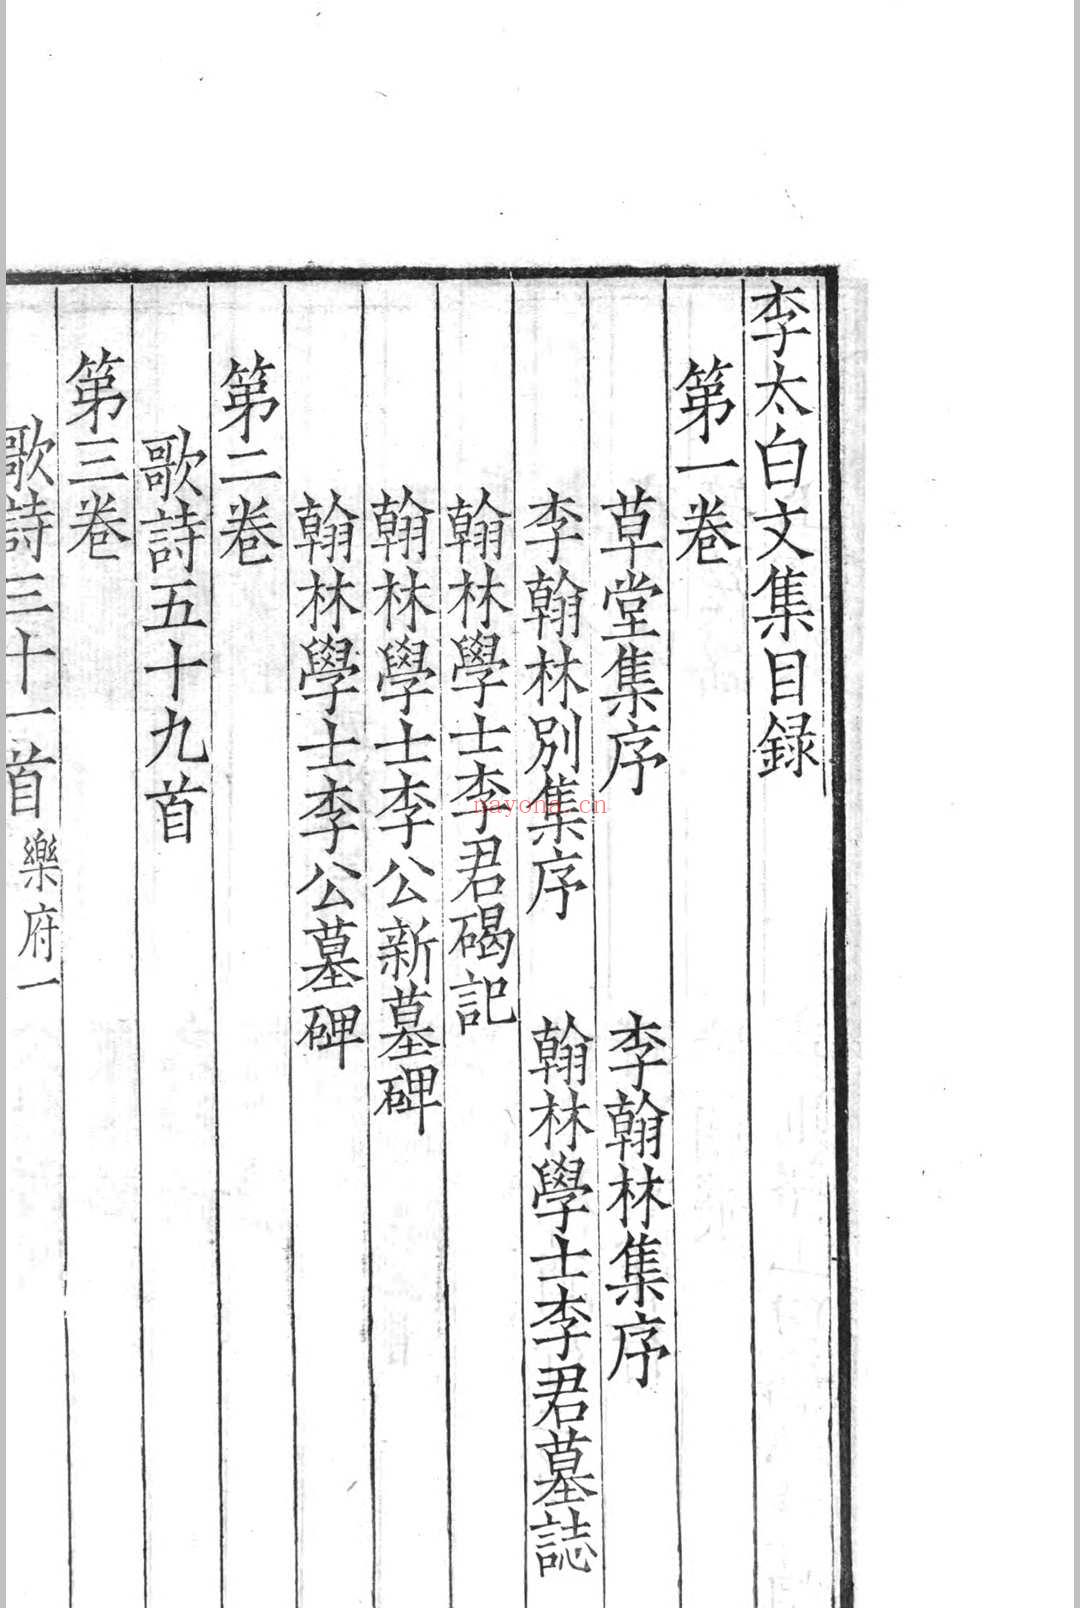 李太白文集目錄
第一卷
草堂集序　李翰林集序
李翰林別集序　翰林學士李君墓誌
翰林學士李君碣記
翰林學士李公新墓碑
翰林學士李公墓碑
第二卷
歌詩五十九首
第三卷
歌詩三十一首樂府一
nayona.cn